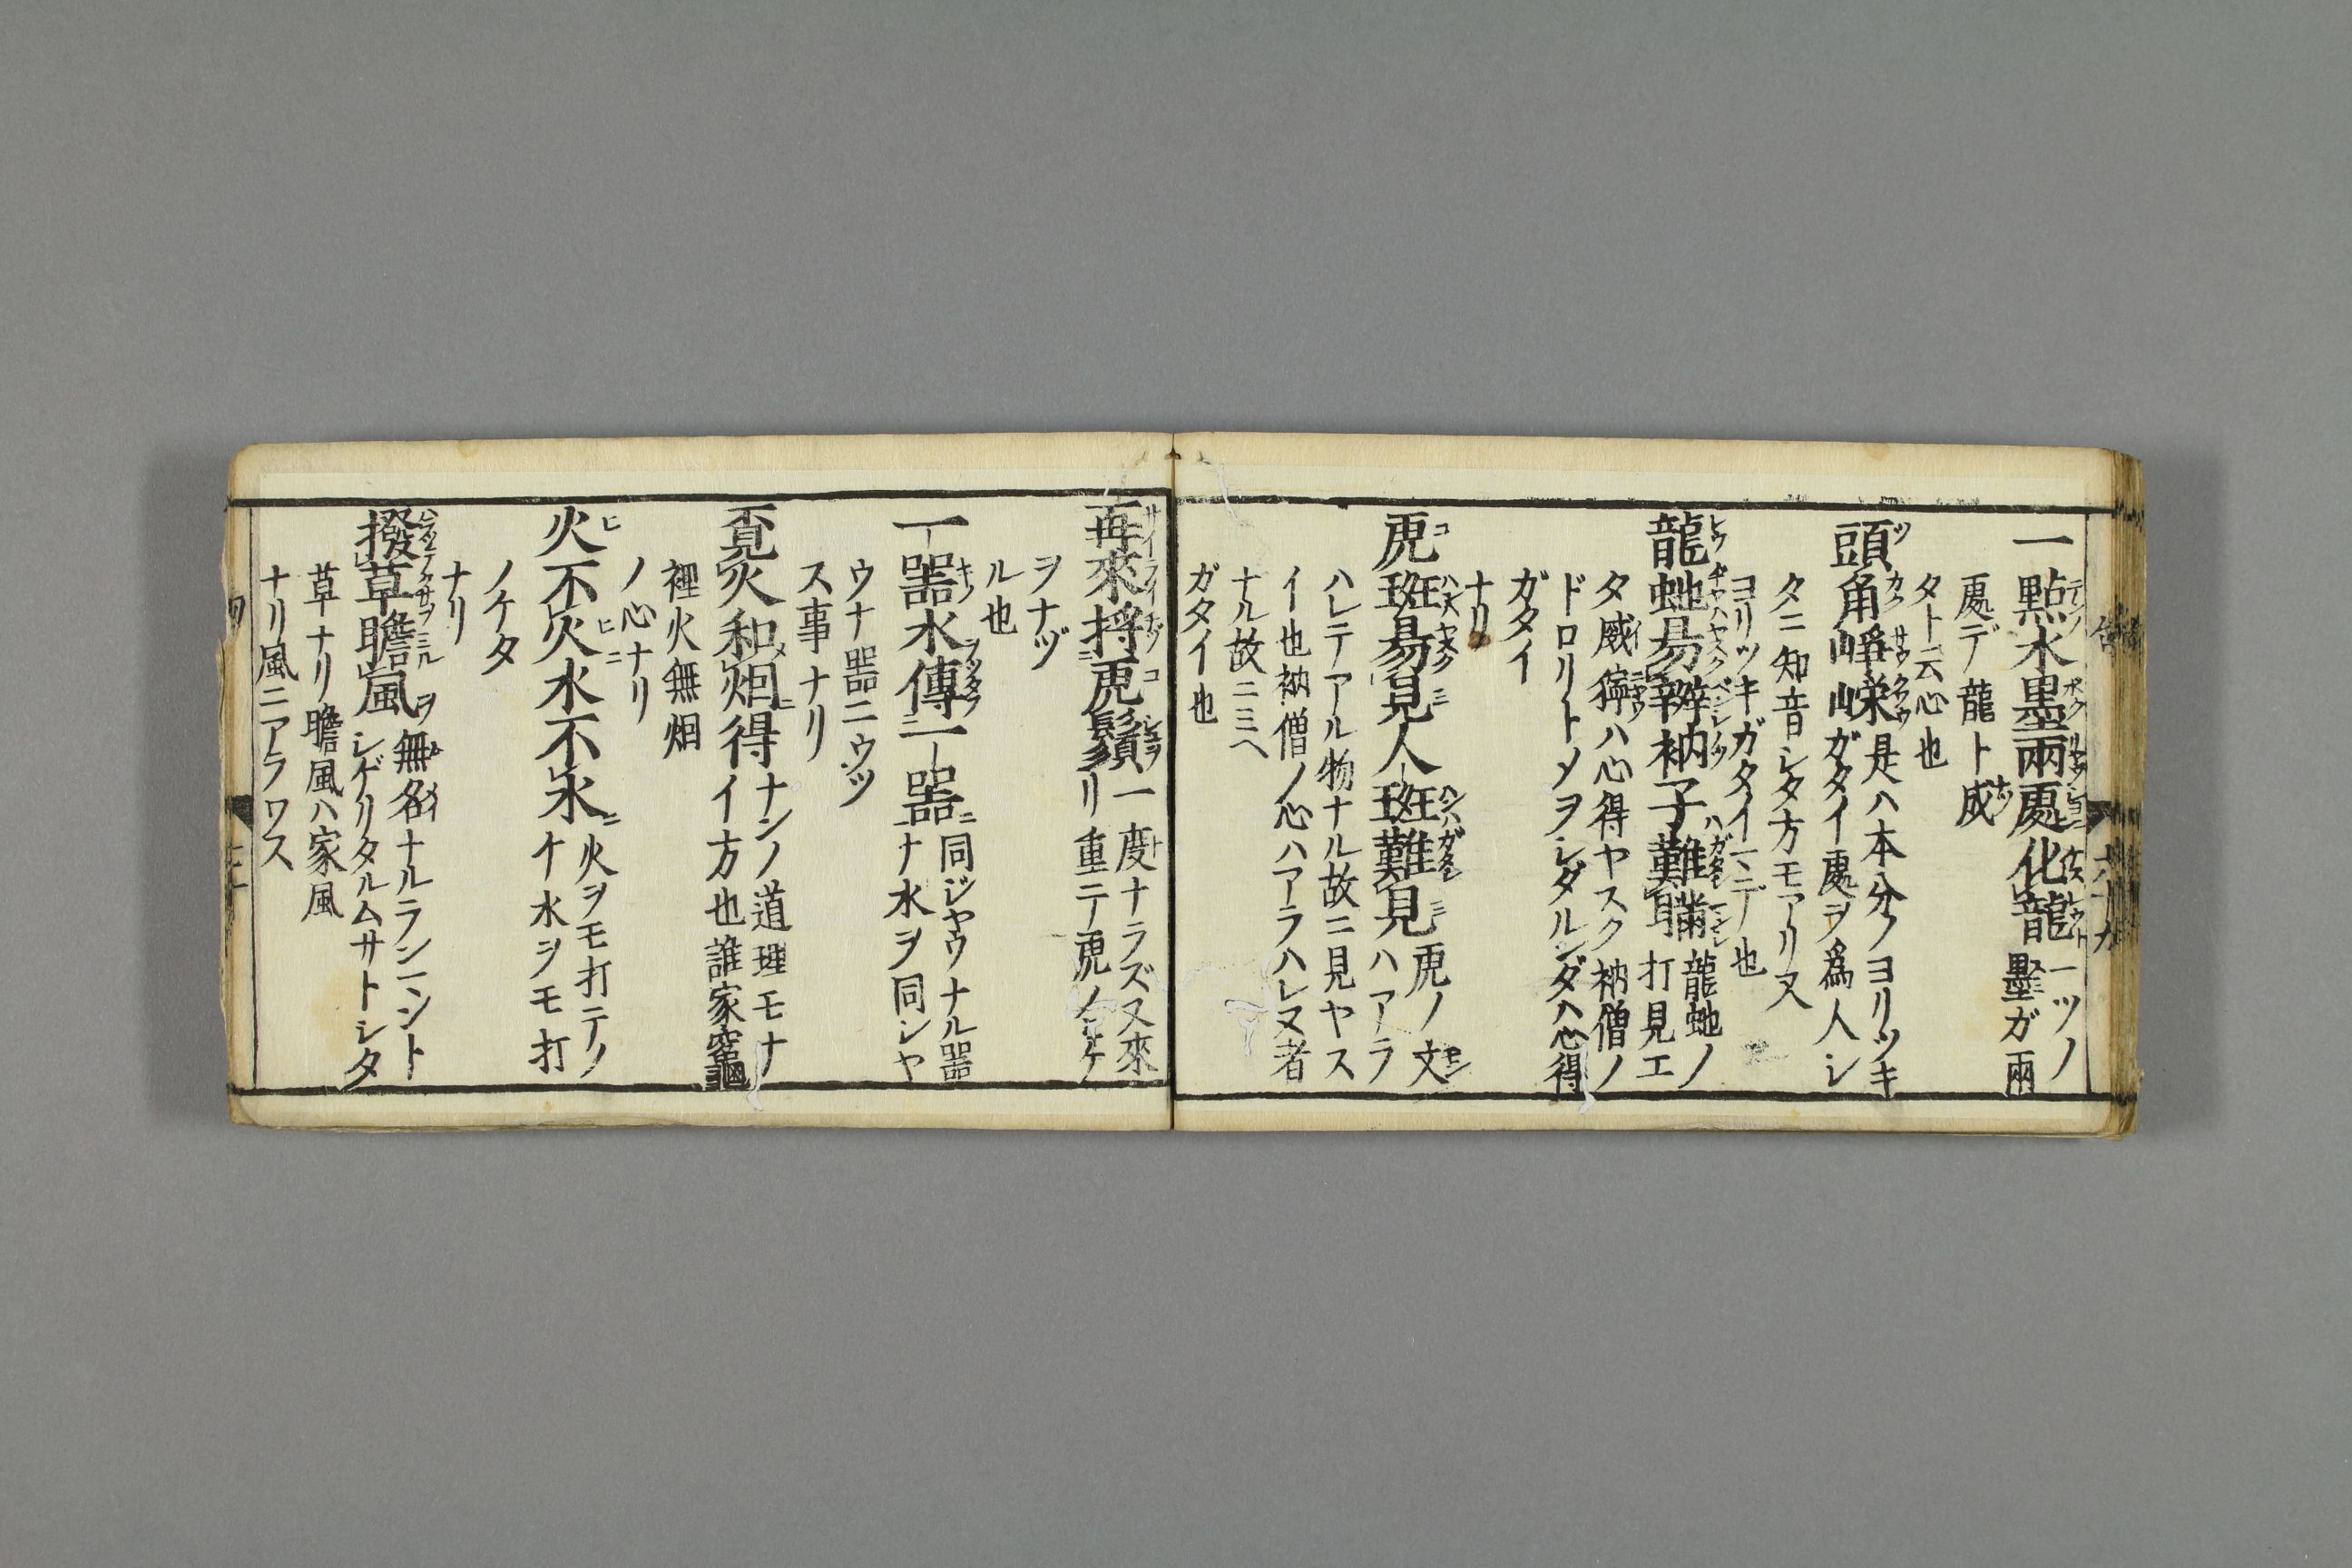 一點水墨兩處化龍一ツノ
墨ガ兩
處デ龍ト成
タト云心也
頭角崢嶸是ハ本分ノヨリツキ
ガタイ處ヲ爲人シ
タニ知音シタ方モアリ又
ヨリツキガタイーンデ也
龍虵易辨衲子難瞞龍虵ノ
打見エ
タ威獰ハ心得ヤスク衲僧ノ
ドロリトメヲシダルンダハ心得
ガタイ
ナリ
虎班易見人班難見虎ノ文
ハアラ
ハレテアル物ナル故ニ見ヤス
イ也衲僧ノ心ハアラハレヌ者
ナル故ニミヘ
ガタイ也
再來捋虎鬚一度ナラズ又來
リ重テ虎ノヒゲ
ヲナヅ
ル也
一器水傳一器同ジヤウナル器
ナ水ヲ同シヤ
ウナ器ニウツ
ス事ナリ
覔火和烟得ナンノ道理モナ
イ方也誰家竈
裡火無烟
ノ心ナリ
火不火水不水火ヲモ打テノ
ケ水ヲモ打
ノケタ
ナリ
撥草瞻風無名ナルランーント
シゲリタルムサトシタ
草ナリ瞻風ハ家風
ナリ風ニアラワス